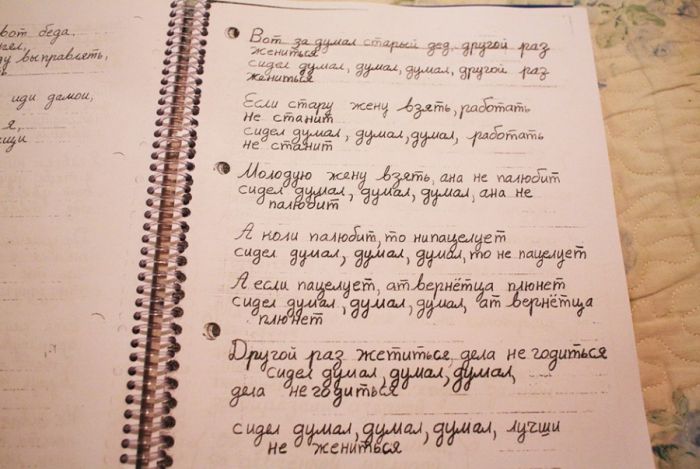 вот беда.
ду выправлять,
иди дамои,
я,
Вот за думал старый дед другой раз
жениться
сидел думал, думал, думал, другой раз
жениться
Если стару жену взять, работать
не станит
сидел думал, думал, думал, работать
не станит
Молодую жену взять, ана не палюбит
сидел думал, думал, думал, ана не
палюбит
А коли палюбит, то нипацелует
сидел думал, думал, думал, то не пацелует
А если пацелует, атвернётца плюнет
сидел думал, думал, думал, ат вернётца
плюнет
Другой раз жетиться, дела не годиться
сидел думал, думал, думал,
дела не годиться
сидел думал, думал, думал, лучши
не жениться